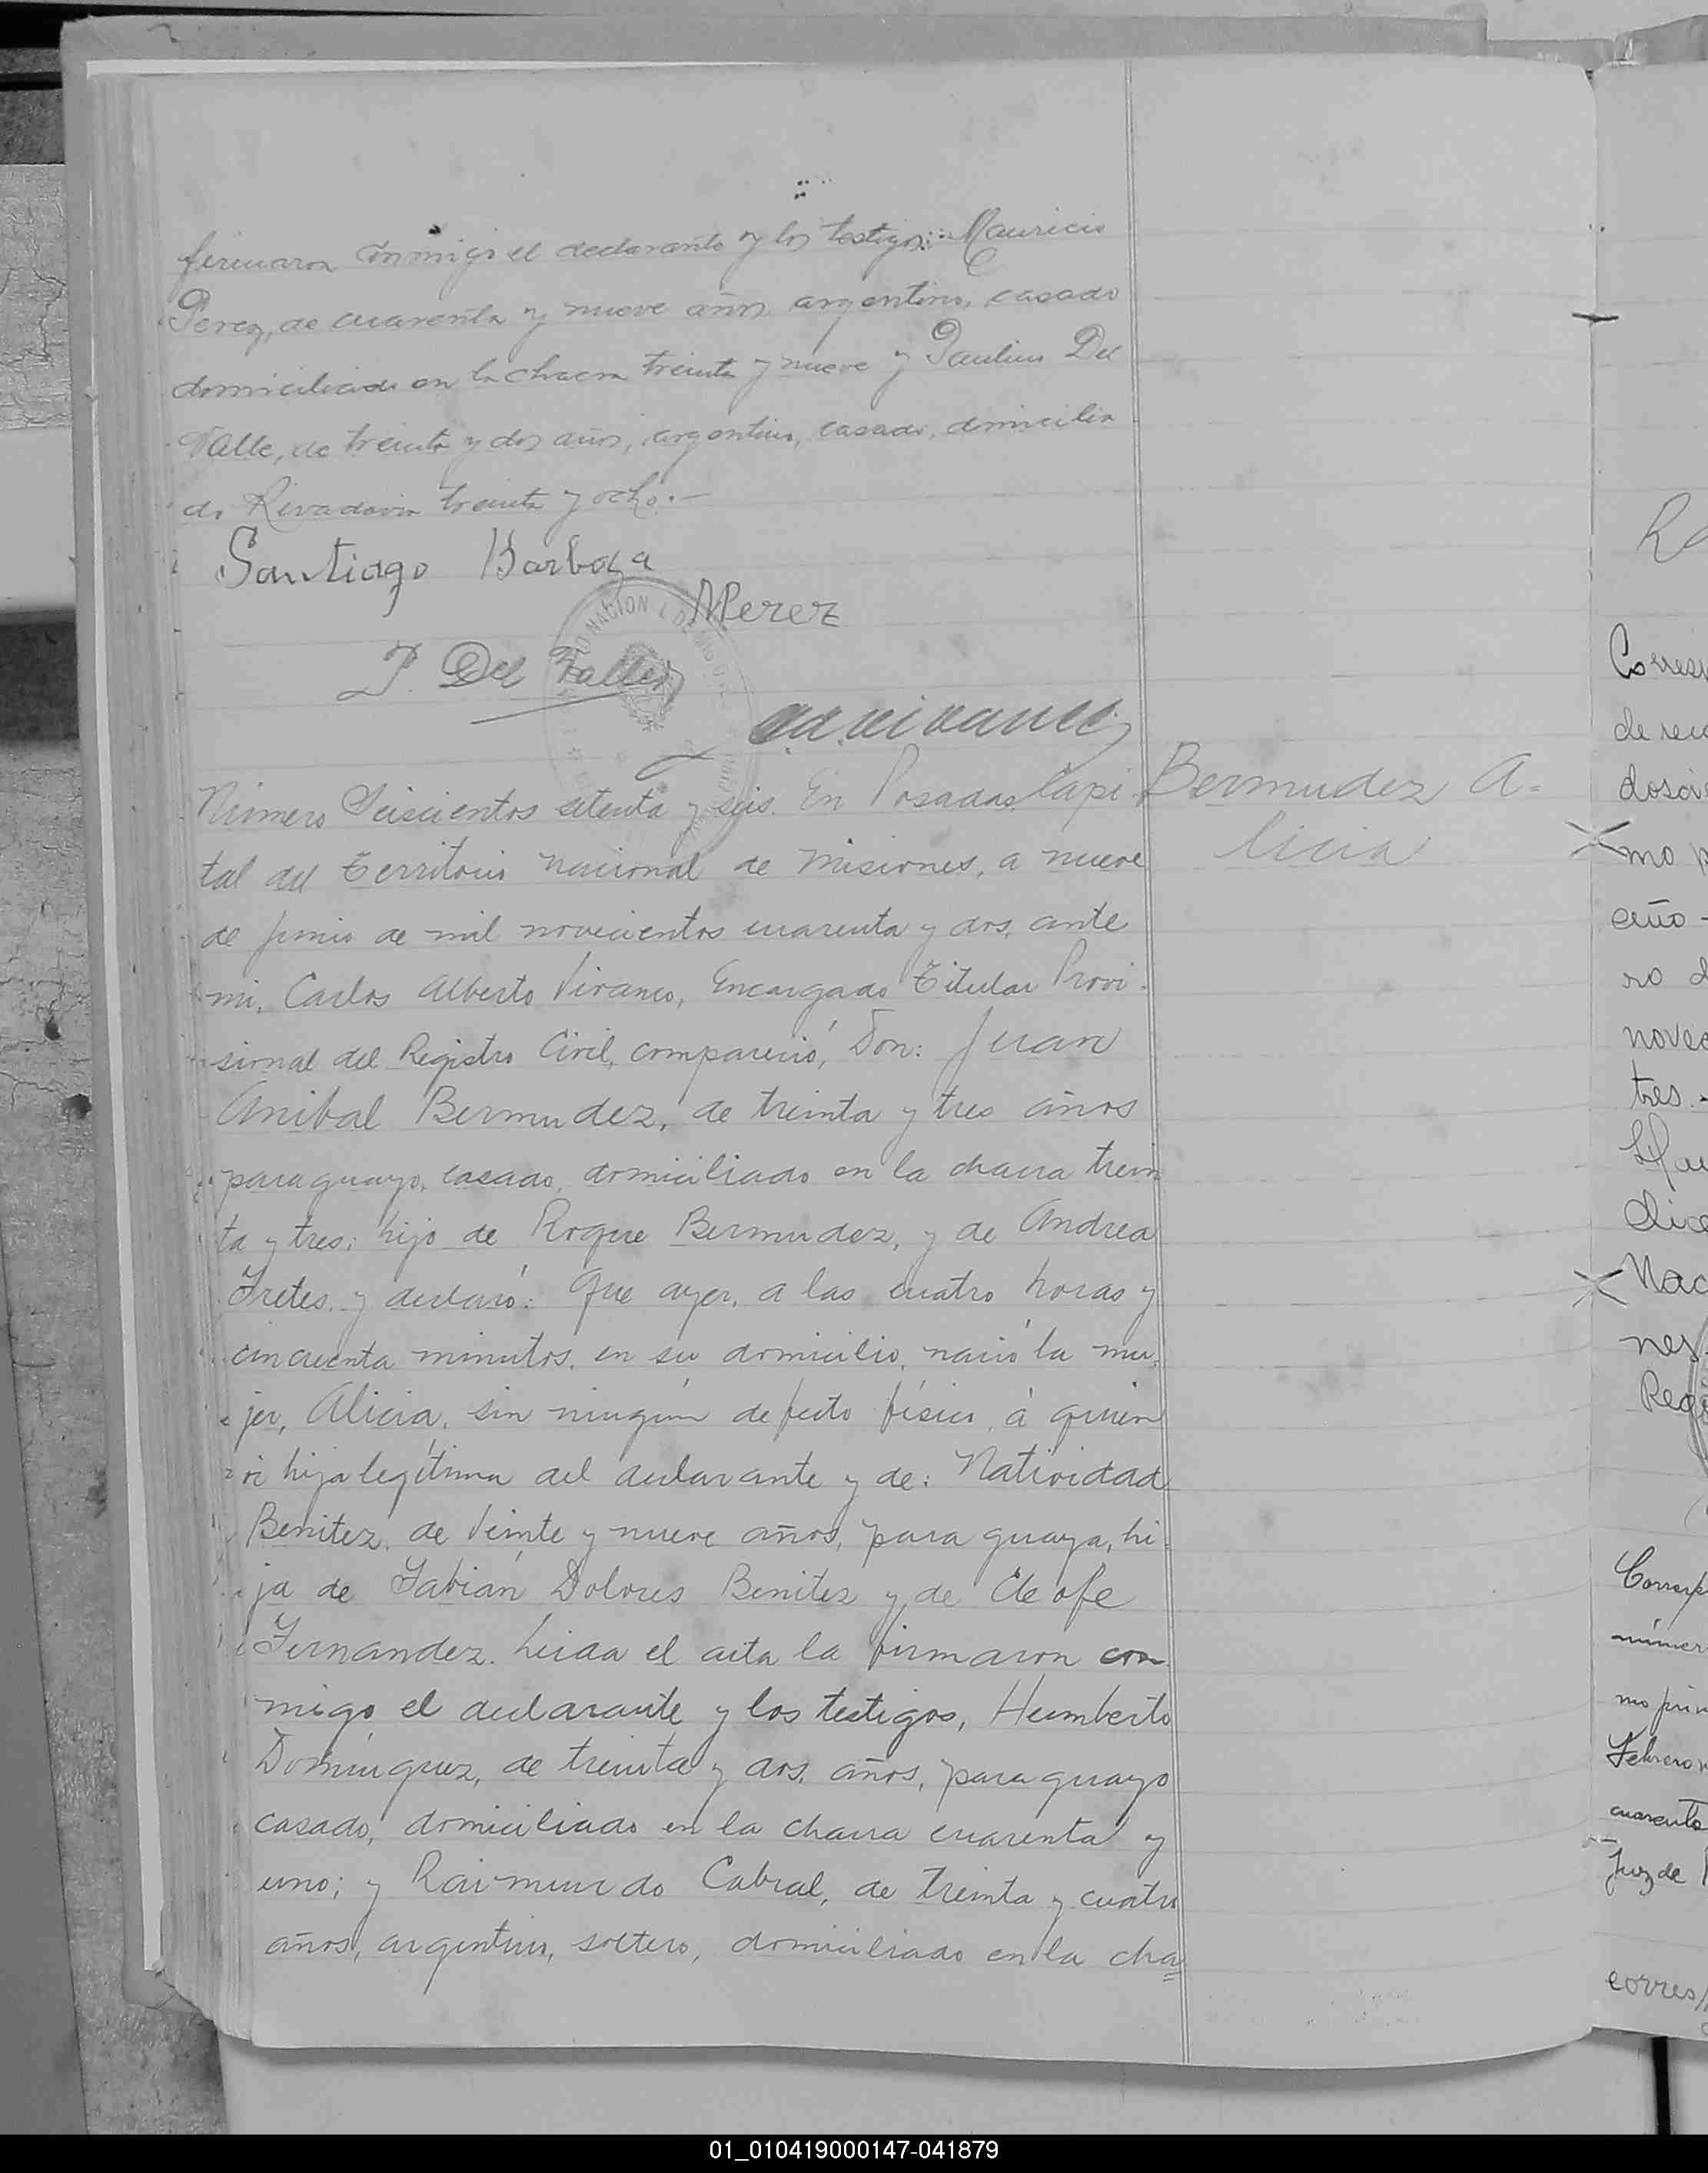 firmaron conmigo el declarante y los testigos: Mauricio
Perez, de cuarenta y nueve años argentino, casado
domiciliado en la chacra treinta y nueve y Paulino Del
Valle, de treinta y dos años, argentino, casado, domicilia
do Rivadavia treinta y ocho.—
Santiago Barboza
MPerez
P. Del Valle
Número Seiscientos setenta y seis. En Posadas, Capi-
tal del Territorio nacional de Misiones, a nueve
de Junio de mil novecientos cuarenta y dos, ante
mi, Carlos Alberto Vivanco, Encargado Titular Provi-
sional del Registro Civil, compareció, Don: Juan
Anibal Bermudez, de treinta y tres años
paraguayo, casado, domiciliado en la chacra trein
ta y tres; hijo de Roque Bermudez, y de Andrea
Fretes, y declaró: Que ayer, a las cuatro horas y
cincuenta minutos, en su domicilio, nació la mu-
jer, Alicia, sin ningún defecto físico, á quien
vi hija legítima del declarante y de: Natividad
Benitez, de Veinte y nueve años, paraguaya, hi-
ja de Fabián Dolores Benitez y de Cleofe
Fernandez. Leida el acta la firmaron con
migo el declarante y los testigos, Humberto
Domínguez, de treinta y dos, años, paraguayo
casado, domiciliado en la chacra cuarenta y
uno; y Raimundo Cabral, de treinta y cuatro
años, argentino, soltero, domiciliado en la cha=
Bermudez A=
licia
de
dosci
mo p
ro d
nove
tres.
dice
Nac
nes
Reg
mo prim
Febrero
cuarenta
Juz de
corres
01_010419000147-041879